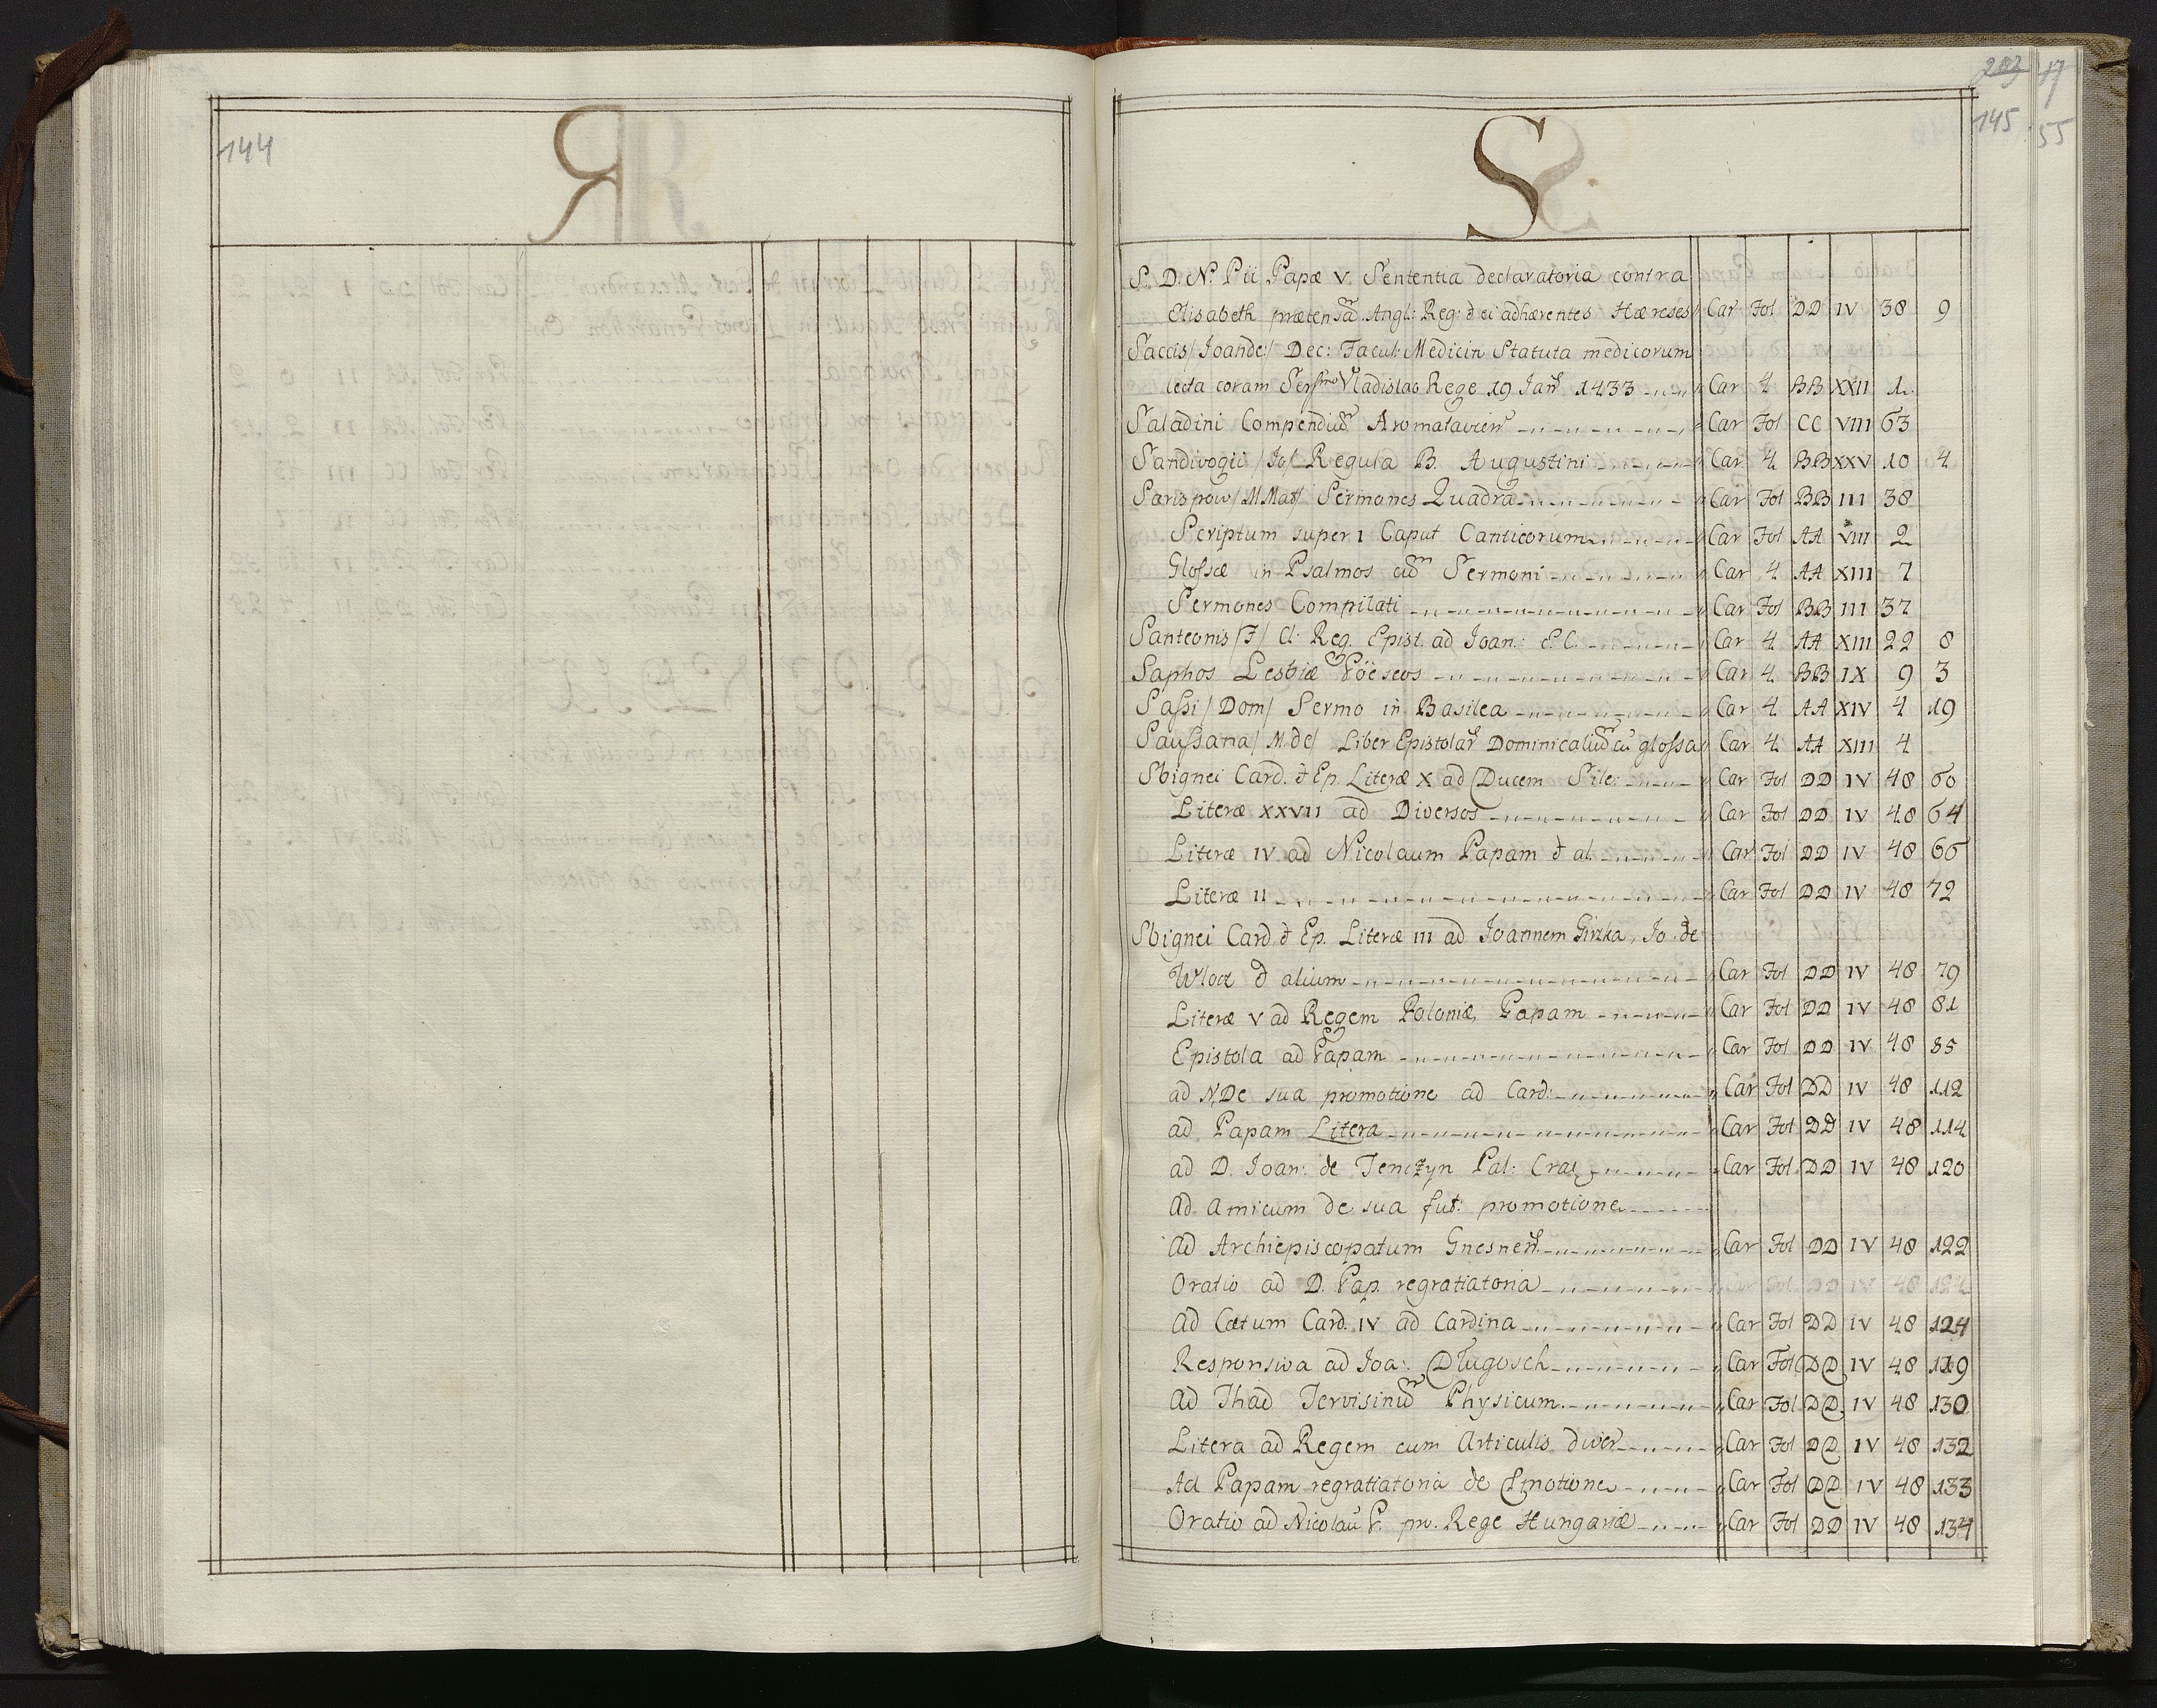 144
R
203 17
145 55
S
S. D. N. Pii Papæ V. Sententia declaratoria contra
Elisabeth prætensã Angl: Reg: & ei adhærentes Hæreses Car Fol DD IV 38 9
Saccis/ Joan de/ Dec: Facul: Medicin Statuta medicorum
lecta coram Serssmo Vladislao Rege 19 Jan 1433 Car 4 BB XXII 1
Saladini Compendiũ Aromatavien Car Fol CC VIII 63
Sandivogii/ Jo/ Regula B. Augustini Car 4 BB XXV 10 4
Sarispow/ M Mat/ Sermones Quadra Car Fol BB III 38
Scriptum super 1 Caput Canticorum Car Fol AA VIII 2
Glossæ in Psalmos cũ Sermoni Car 4 AA XIII 7
Sermones Compilati Car Fol BB III 37
Santeonis/ F/ Cl: Reg. Epist. ad Joan: E.C. Car 4 AA XIII 22 8
Saphos Lesbiæ Pöeseos Car 4 BB IX 9 3
Sassi/ Dom/ Sermo in Basilea Car 4 AA XIV 4 19
Saussana/ M. de/ Liber Epistolar Dominicaliũ cũ glossa Car 4 AA XIII 4
Sbignei Card. & Ep. Literæ X ad Ducem Sile: Car Fol DD IV 48 60
Literæ XXVII ad Diversos Car Fol DD IV 48 64
Literæ IV ad Nicolaum Papam & al. Car Fol DD IV 48 66
Literæ II Car Fol DD IV 48 72
Sbignei Card & Ep. Literæ III ad Joannem Girzka, Jo. de
Wloct & alium Car Fol DD IV 48 79
Literæ V ad Regem Poloniæ, Papam Car Fol DD IV 48 81
Epistola ad Papam Car Fol DD IV 48 85
ad N, De sua promotione ad Card: Car Fol DD IV 48 112
ad Papam Litera Car Fol DD IV 48 114
ad D. Joan: de Tenczyn Pal: Crac Car Fol DD IV 48 120
Ad Amicum de sua fut: promotione
Ad Archiepiscopatum Gnesnen Car Fol DD IV 48 122
Oratio ad D. Pap. regratiatoria Car Fol DD IV 48 124
Ad Cœtum Card. IV ad Cardina Car Fol DD IV 48 124
Responsiva ad Joa: Długosch Car Fol DD IV 48 119
Ad Thad Tervisinũ Physicum Car Fol DD IV 48 130
Litera ad Regem cum Articulis diver Car Fol DD IV 48 132
Ad Papam regratiatoria de Pmotione Car Fol DD IV 48 133
Oratio ad Nicolaũ P. pro Rege Hungariæ Car Fol DD IV 48 134